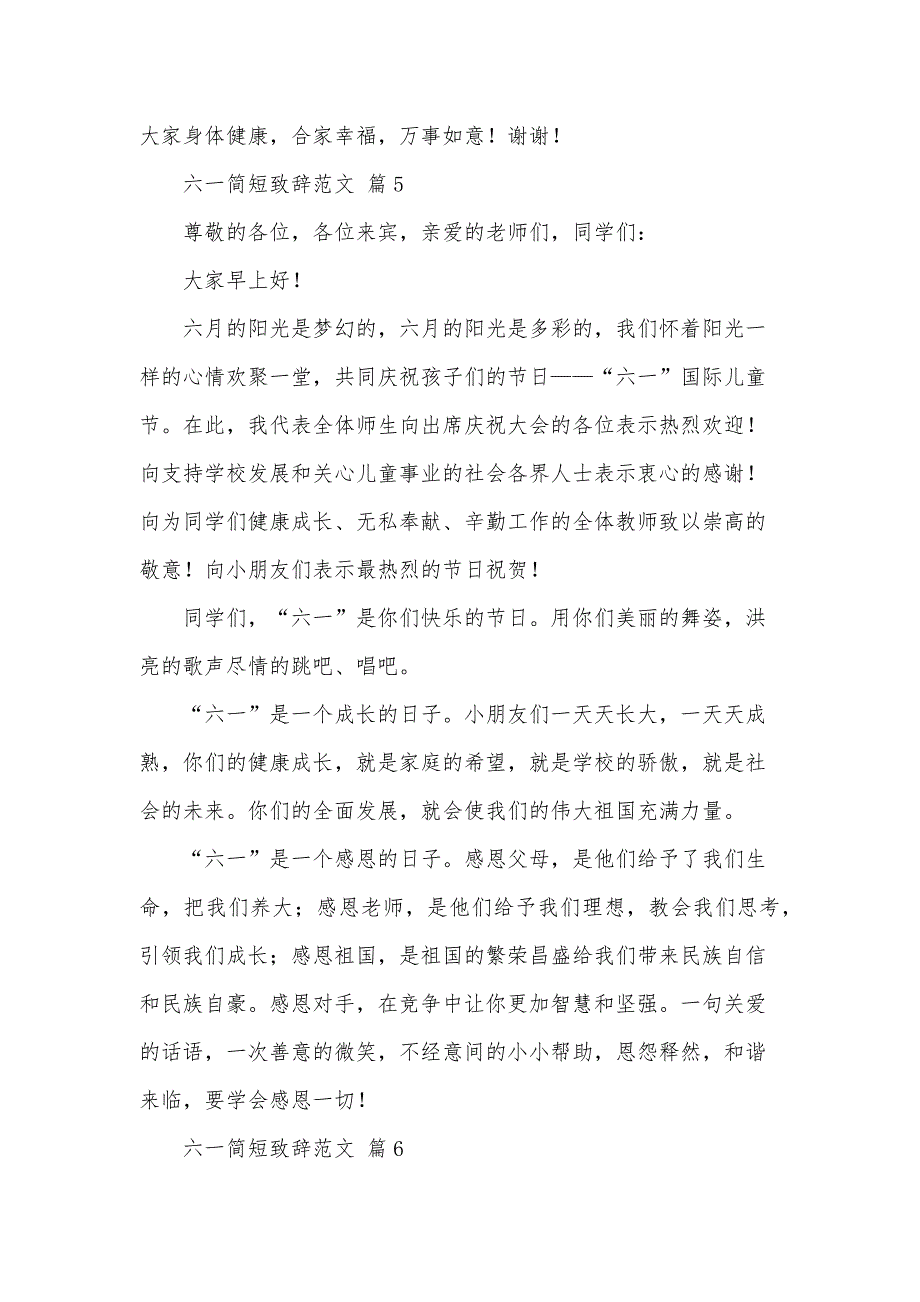 大家身体健康，合家幸福，万事如意！谢谢！
六一简短致辞范文 篇5
尊敬的各位，各位来宾，亲爱的老师们，同学们：
大家早上好！
六月的阳光是梦幻的，六月的阳光是多彩的，我们怀着阳光一
样的心情欢聚一堂，共同庆祝孩子们的节日——“六一”国际儿童
节。在此，我代表全体师生向出席庆祝大会的各位表示热烈欢迎！
向支持学校发展和关心儿童事业的社会各界人士表示衷心的感谢！
向为同学们健康成长、无私奉献、辛勤工作的全体教师致以崇高的
敬意！向小朋友们表示最热烈的节日祝贺！
同学们，“六一”是你们快乐的节日。用你们美丽的舞姿，洪
亮的歌声尽情的跳吧、唱吧。
“六一”是一个成长的日子。小朋友们一天天长大，一天天成
熟，你们的健康成长，就是家庭的希望，就是学校的骄傲，就是社
会的未来。你们的全面发展，就会使我们的伟大祖国充满力量。
“六一”是一个感恩的日子。感恩父母，是他们给予了我们生
命，把我们养大；感恩老师，是他们给予我们理想，教会我们思考，
引领我们成长；感恩祖国，是祖国的繁荣昌盛给我们带来民族自信
和民族自豪。感恩对手，在竞争中让你更加智慧和坚强。一句关爱
的话语，一次善意的微笑，不经意间的小小帮助，恩怨释然，和谐
来临，要学会感恩一切！
六一简短致辞范文 篇6